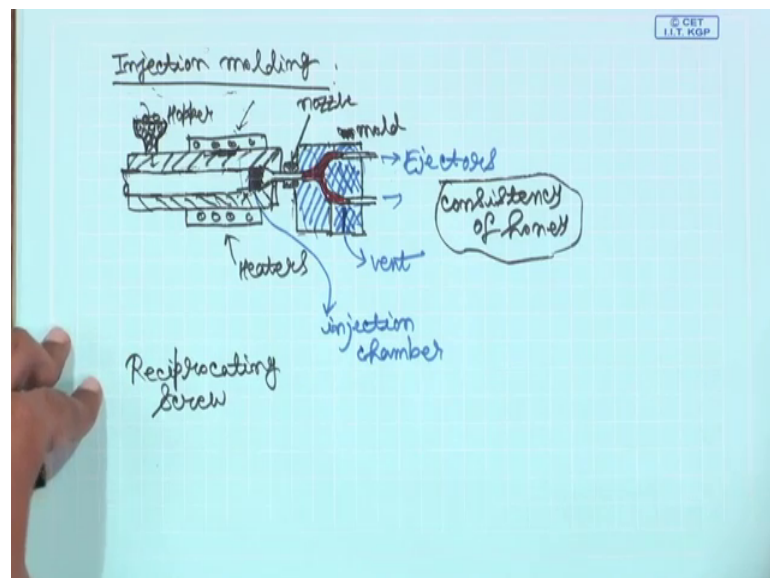 © CET
I.I.T. KGP
Injection molding
Hopper
nozzle
mold
Ejectors
consistency
of honey
vent
Heaters
injection
chamber
Reciprocating
Screw